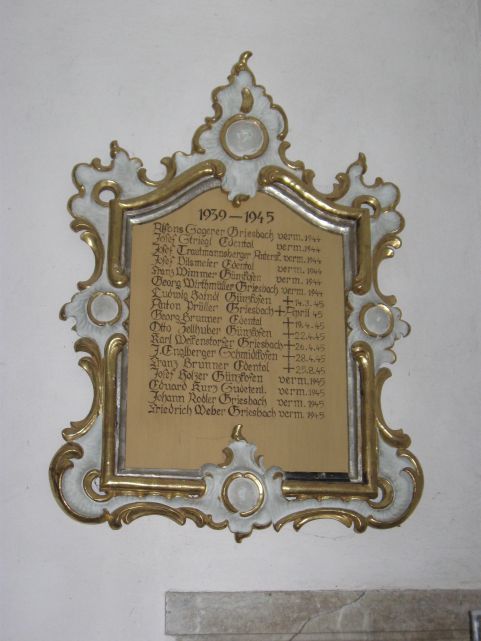 1939 – 1945
Alfons Sagerer Griesbach verm. 1944
Josef Striegl Edental verm. 1944
Josef Trautmannsberger verm. 1944
Josef Vilsmeier Edental verm. 1944
Franz Wimmer Günzkofen verm. 1944
Georg Wirthmüller Griesbach verm. 1944
Ludwig Zaindl Günzkofen + 14.3.45
Anton Prüller Griesbach + April 45
Georg Brunner Edental + 19.4.45
Otto Zellhuber Günzkofen + 22.4.45
Karl Weßenstorfer Griesbach + 26.4.45
J. Englberger Schmidlkofen + 28.4.45
Franz Brunner Edental + 25.8.45
Josef Holzer Günzkofen verm. 1945
Eduard Kurz Sudetenl. verm. 1945
Johann Rodler Griesbach verm. 1945
Friedrich Weber Griesbach verm. 1945